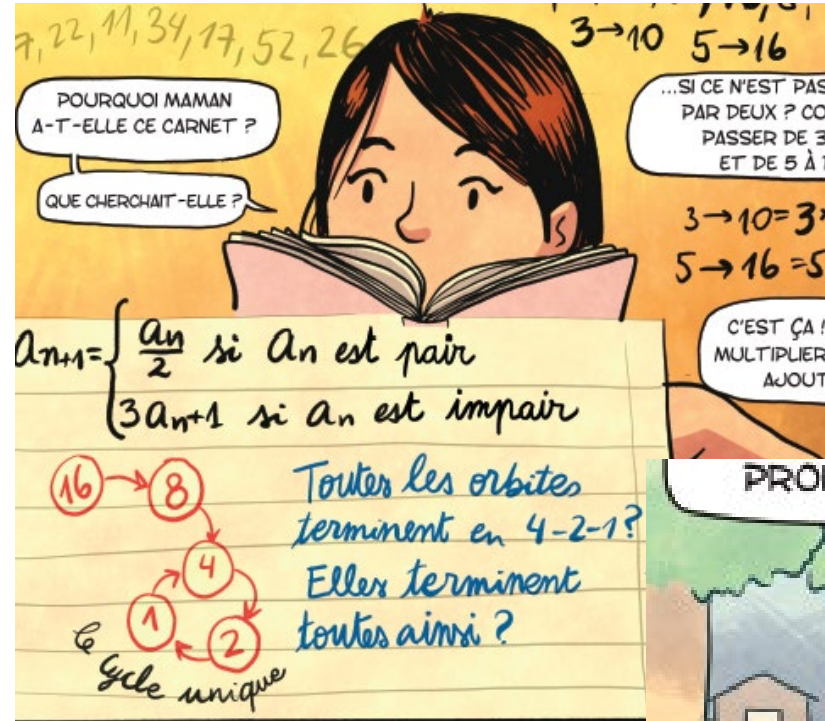 7, 22, 11, 34, 17, 52, 26
3→10 5→16
POURQUOI MAMAN
A-T-ELLE CE CARNET ?
QUE CHERCHAIT-ELLE ?
...SI CE N'EST PAS
PAR DEUX ? CO
PASSER DE 3
ET DE 5 À 1
3→10=3
5→16=5
C'EST ÇA !
MULTIPLIER
AJOUT
an+1= { an/2 si an est pair
3an+1 si an est impair
16 → 8
4
1
2
le cycle unique
Toutes les orbites
terminent en 4-2-1?
Elles terminent
toutes ainsi ?
PRO